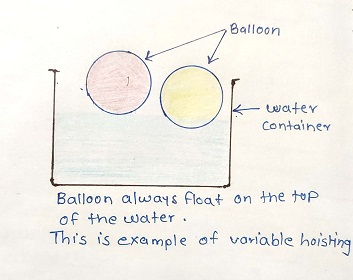 Balloon
water
container
Balloon always float on the top
of the water.
This is example of variable hoisting